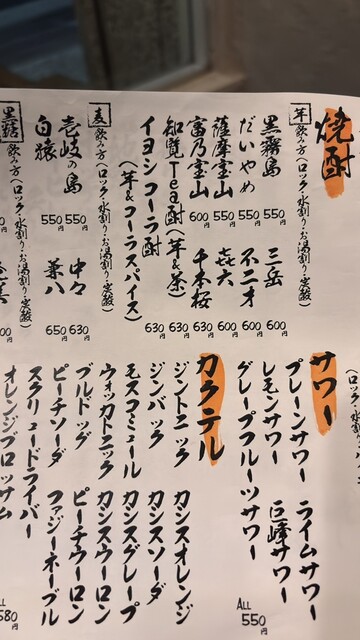 焼酎
芋 飲み方(ロック・水割り・お湯割り・炭酸)
黒霧島 550円
三岳 600円
だいやめ 550円
不二才 600円
薩摩宝山 550円
㐂六 600円
富乃宝山 600円
千本桜 630円
知覧Tea酎(芋&茶) 630円
イヨシコーラ酎 630円
(芋&コーラスパイス)
麦 飲み方(ロック・水割り・お湯割り・炭酸)
壱岐の島 550円
中々 630円
白猿 550円
兼八 650円
黒糖 飲み方(ロック・水割り・お湯割り・炭酸)
(ロック・水
サワー
プレーンサワー
ライムサワー
レモンサワー
巨峰サワー
グレープフルーツサワー
ALL 550円
カクテル
ジントニック
カシスオレンジ
ジンバック
カシスソーダ
モスコミュール
カシスグレープ
ウォッカトニック
カシスウーロン
ブルドッグ
ピーチウーロン
ピーチソーダ
ファジーネーブル
スクリュードライバー
オレンジブロッサム
580円